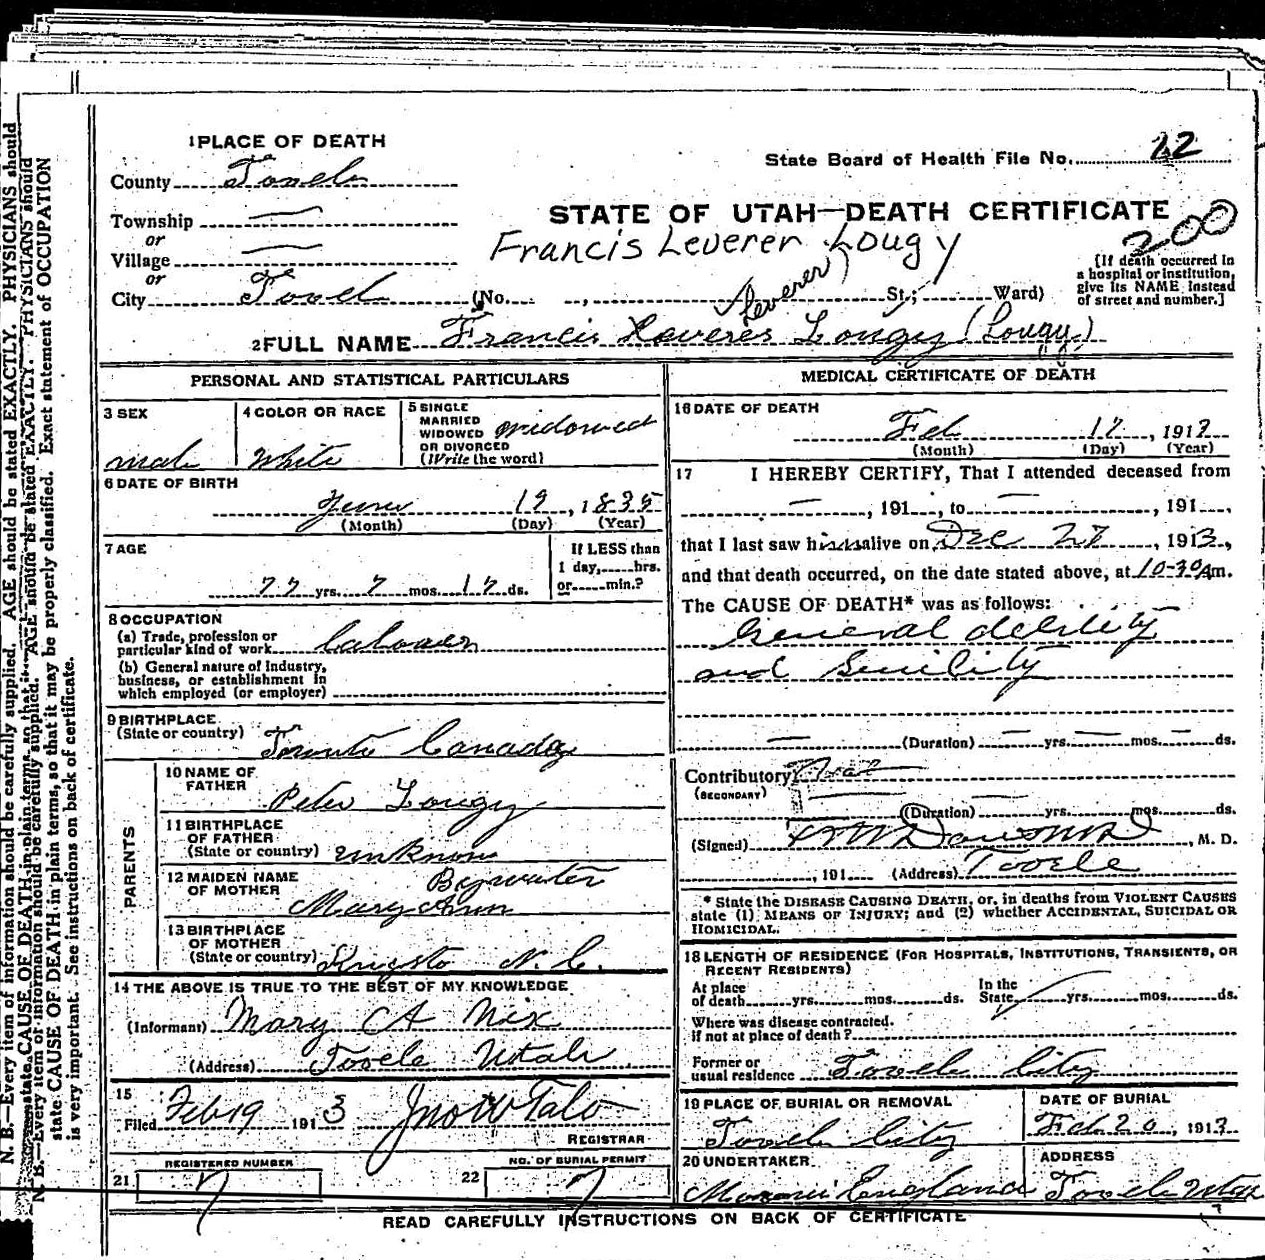 1 PLACE OF DEATH
State Board of Health File No. 22
County Tooele
Township —
or
Village —
or
City Tooel
STATE OF UTAH—DEATH CERTIFICATE
200
Francis Leverer Lougy
[If death occurred in
a hospital or institution,
give its NAME instead
of street and number.]
(No. , St; Ward)
Leverer)
2 FULL NAME Francis Xaveres Lougy (Lougy)
PERSONAL AND STATISTICAL PARTICULARS
3 SEX
male
4 COLOR OR RACE
White
5 SINGLE
MARRIED
WIDOWED
OR DIVORCED
(Write the word)
widowed
6 DATE OF BIRTH
June 19, 1835
(Month) (Day) (Year)
7 AGE
77 yrs. 7 mos. 17 ds.
If LESS than
1 day,.....hrs.
or.....min.?
8 OCCUPATION
(a) Trade, profession or
particular kind of work Laborer
(b) General nature of Industry,
business, or establishment in
which employed (or employer)
9 BIRTHPLACE
(State or country) Toronto Canada
PARENTS
10 NAME OF
FATHER
Peter Lougy
11 BIRTHPLACE
OF FATHER
(State or country) unknown
12 MAIDEN NAME
OF MOTHER
Bywater
Mary Ann
13 BIRTHPLACE
OF MOTHER
(State or country) N. C.
14 THE ABOVE IS TRUE TO THE BEST OF MY KNOWLEDGE
(Informant) Mary A Nix
(Address) Tooele Utah
15
Filed Feb 19 1913
REGISTRAR
REGISTERED NUMBER
21 7
NO. OF BURIAL PERMIT
22 7
MEDICAL CERTIFICATE OF DEATH
16 DATE OF DEATH
Feb 17, 1913
(Month) (Day) (Year)
17 I HEREBY CERTIFY, That I attended deceased from
—, 191...., to —, 191....,
that I last saw him alive on Dec 27, 1913,
and that death occurred, on the date stated above, at 10-30 Am.
The CAUSE OF DEATH* was as follows:
General debility
and Senility
— (Duration) — yrs. — mos. — ds.
Contributory
(SECONDARY)
(Duration) yrs. mos. ds.
(Signed) , M. D.
, 191 (Address) Tooele
* State the DISEASE CAUSING DEATH, or, in deaths from VIOLENT CAUSES
state (1) MEANS OF INJURY; and (2) whether ACCIDENTAL, SUICIDAL OR
HOMICIDAL.
18 LENGTH OF RESIDENCE (FOR HOSPITALS, INSTITUTIONS, TRANSIENTS, OR
RECENT RESIDENTS)
At place In the
of death yrs. mos. ds. State yrs. mos. ds.
Where was disease contracted.
if not at place of death?
Former or
usual residence Tooele City
19 PLACE OF BURIAL OR REMOVAL
Tooele City
DATE OF BURIAL
Feb 20, 1913
20 UNDERTAKER
England
ADDRESS
Tooele Utah
READ CAREFULLY INSTRUCTIONS ON BACK OF CERTIFICATE
N. B.—Every item of information should be carefully supplied. AGE should be stated EXACTLY. PHYSICIANS should
state CAUSE OF DEATH in plain terms, so that it may be properly classified. Exact statement of OCCUPATION
is very important. See instructions on back of certificate.